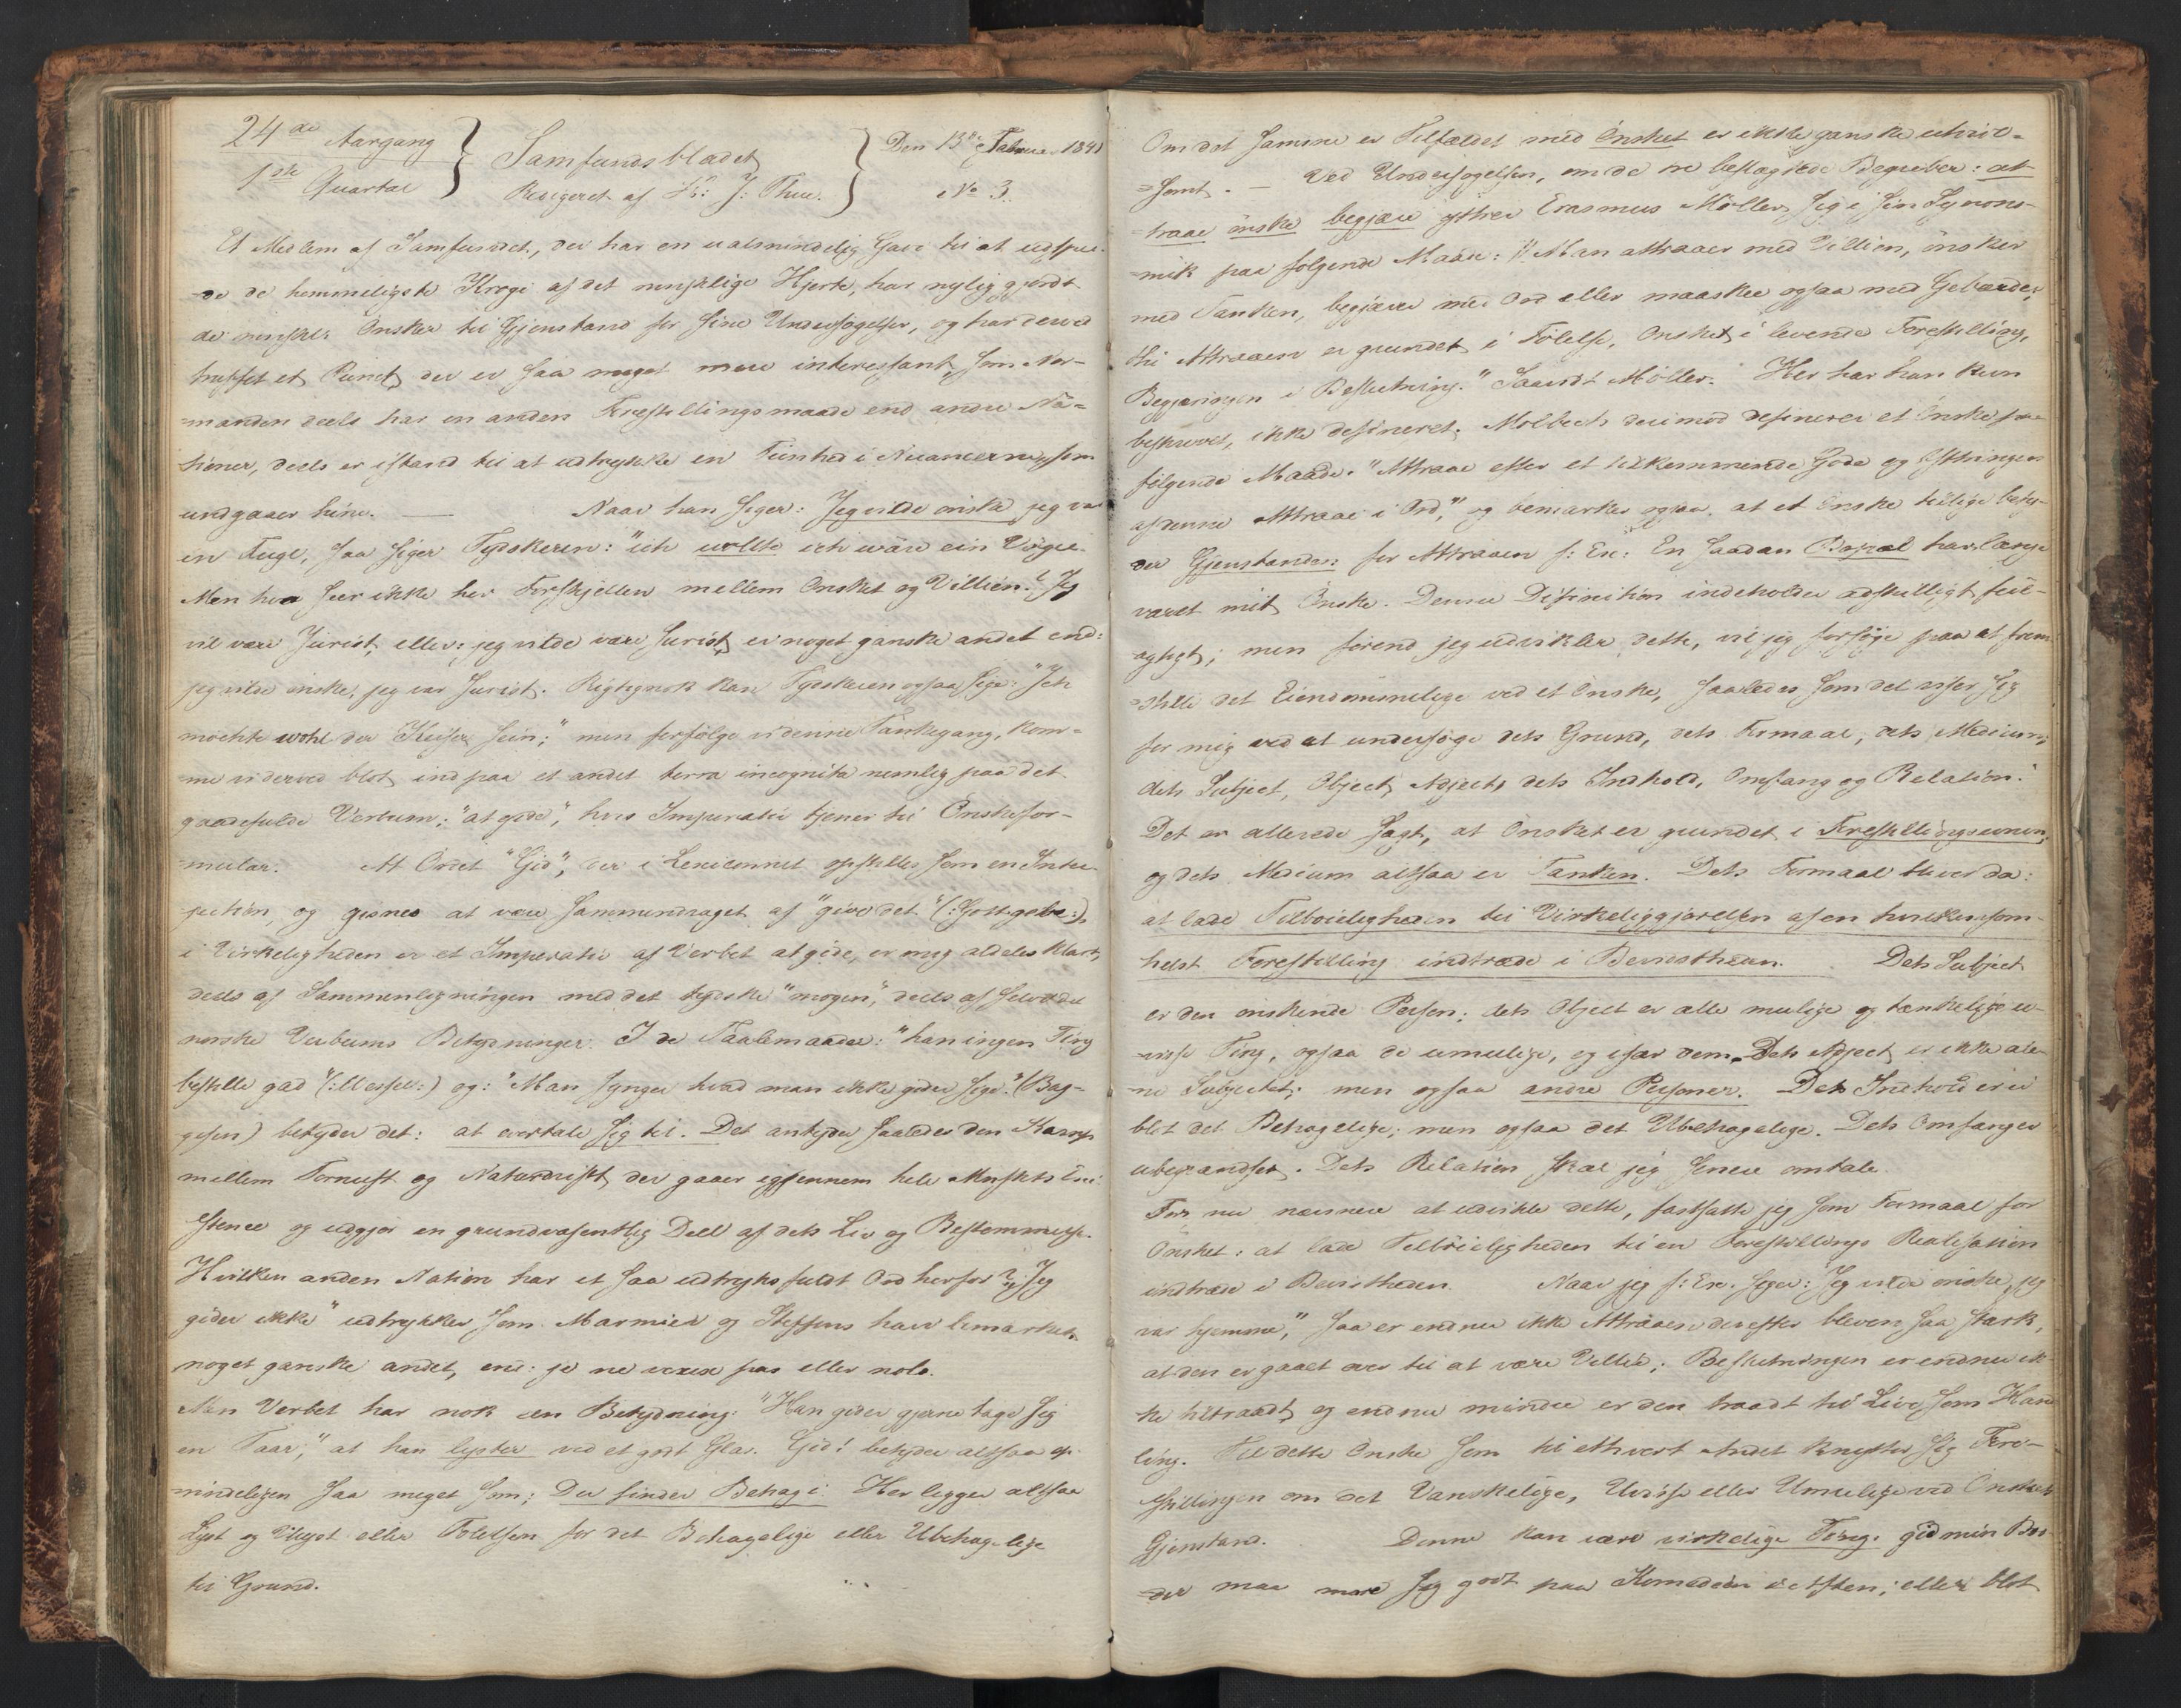 24de Aargang
1ste Quartal
Samfundsbladet
Redigeret af Hr: J: Thue.
Den 13de Februar 1841
No 3.
Et Medlem af Samfundet, der har en ualmindelig Gave til at udspei-
-de de hemmeligste Kroge af det menskelige Hjerte, har nylig gjordt
de menskel: Ønsker til Gjenstand for sine Undersøgelser, og har derved
truffet et Punct, der er saa meget mere interessant, som Nor-
=manden deels har en anden Forestillingsmaade end andre Na=
tioner, deels er istand til at udtrykke en Fiinhed i Nuancerne, som
undgaaer hine. — Naar han siger: Jeg vilde ønske jeg var
en Fugl, saa siger Tydskeren: "ich wollte ich wäre ein Vogel.
Men hvo seer ikke her Forskjellen mellem Ønsket og Villien? Jeg
vil være Jurist, eller: jeg vilde være Jurist, er noget ganske andet end:
jeg vilde ønske, jeg var Jurist. Rigtignok kan Tydskeren ogsaa sige: "Ich
möchte wohl der Keiser sein;" men forfølge vi denne Tankegang, kom=
=me vi derved blot ind paa et andet terra incognita nemlig paa det
gaadefulde Verbum: "at gide", hvis Imperativ tjener til Ønskefor-
=mular. At Ordet "Gid", der i Lexiconnet opstilles som en Inter-
jection, og gisnes at være sammendraget af "give det" (:Gott gebe:),
i Virkeligheden er et Imperativ af Verbet at gide, er mig aldeles klart,
deels af Sammenligningen med det tydske "mogen", deels af selve det
norske Verbums Betydninger. I de Taalemaader: "han ingen Ting
bestille gad" (:Wessel:) og: "Man synger hvad man ikke gider sige." (Bag-
gesen) betyder det: at overtale sig til. Det antyder saaledes den Kamp
mellem Fornuft og Naturdrift, der gaaer igjennem hele Msksts Exi-
stence og udgjør en grundvæsentlig Deel af dets Liv og Bestemmelse.
Hvilken anden Nation har et saa udtryksfuldt Ord herfor? "Jeg
gider ikke" udtrykker som Marmier og Steffens have bemærket,
noget ganske andet, end: je ne veux pas eller nolo.
Men Verbet har nok een Betydning: "Han gider gjerne tage sig
en Taar", at han lyster ved et godt Glas. Gid! betyder altsaa op-
rindeligen saa meget som: Du finder Behag i. Her ligger altsaa
Lyst og Ulyst eller Følelsen for det Behagelige eller Ubehagelige
til Grund.
Om det samme er Tilfældet med Ønsket er ikke ganske utvivl=
=somt. — Ved Undersøgelsen, om de tre beslægtede Begreber: at
=traae ønske begjære yttrer Erasmus Møller sig i sin Synony-
=mik paa følgende Maade: "Man attraaer med Villien, ønsker
med Tanken, begjærer med Ord eller maaskee ogsaa med Gebærder,
thi Attraaen er grundet i Følelse, Ønsket i levende Forestilling,
Begjæringen i Beslutning." Saavidt Møller. Her har han kun
beskrevet, ikke defineret. Molbech derimod definerer et Ønske paa
følgende Maade: "Attraae efter et tilkommende Gode og Yttringen
af denne Attraae i Ord," og bemærker ogsaa, at et Ønske tillige bety-
der Gjenstanden for Attraaen f: Ex: En saadan Bopæl har længe
været mit Ønske. Denne Definition indeholder adskilligt feil-
agtigt; men førend jeg udvikler dette, vil jeg forsøge paa at frem-
=stille det Eiendommelige ved et Ønske, saaledes som det viser sig
for mig ved at undersøge dets Grund, dets Formaal, dets Medium,
dets Subject, Object, Adject, dets Indhold, Omfang og Relation.
Det er allerede sagt, at Ønsket er grundet i Forestillingsevnen,
og dets Medium altsaa er Tanken. Dets Formaal bliver da:
at lade Tilbøieligheden til Virkeliggjørelsen af en hvilkensom-
helst Forestilling indtræde i Bevistheden. Dets Subject
er den ønskende Person; dets Object er alle mulige og tænkelige u-
-visse Ting, ogsaa de umulige, og især dem. Dets Adject er ikke ale-
ne Subjectet; men ogsaa andre Personer. Dets Indhold er ei
blot det Behagelige; men ogsaa det Ubehagelige. Dets Omfang er
ubegrændset. Dets Relation skal jeg senere omtale.
For nu nærmere at udvikle dette, fastsatte jeg som Formaal for
Ønsket: at lade Tilbøieligheden til en Forestillings Realisation
indtræde i Bevistheden. Naar jeg f: Ex. siger: "Jeg vilde ønske, jeg
var hjemme", saa er endnu ikke Attraaen derefter bleven saa stærk,
at den er gaaet over til at være Villie; Beslutningen er endnu ik-
ke tiltraadt, og endnu mindre er den traadt til Live som Hand-
ling. Til dette Ønske som til ethvert Andet knytter sig Fore-
stillingen om det Vanskelige, Uvisse eller Umulige ved Ønskets
Gjenstand. Denne kan være virkelige Ting: gid min Bro-
=der maa more sig godt paa Komedien iaften; eller blot